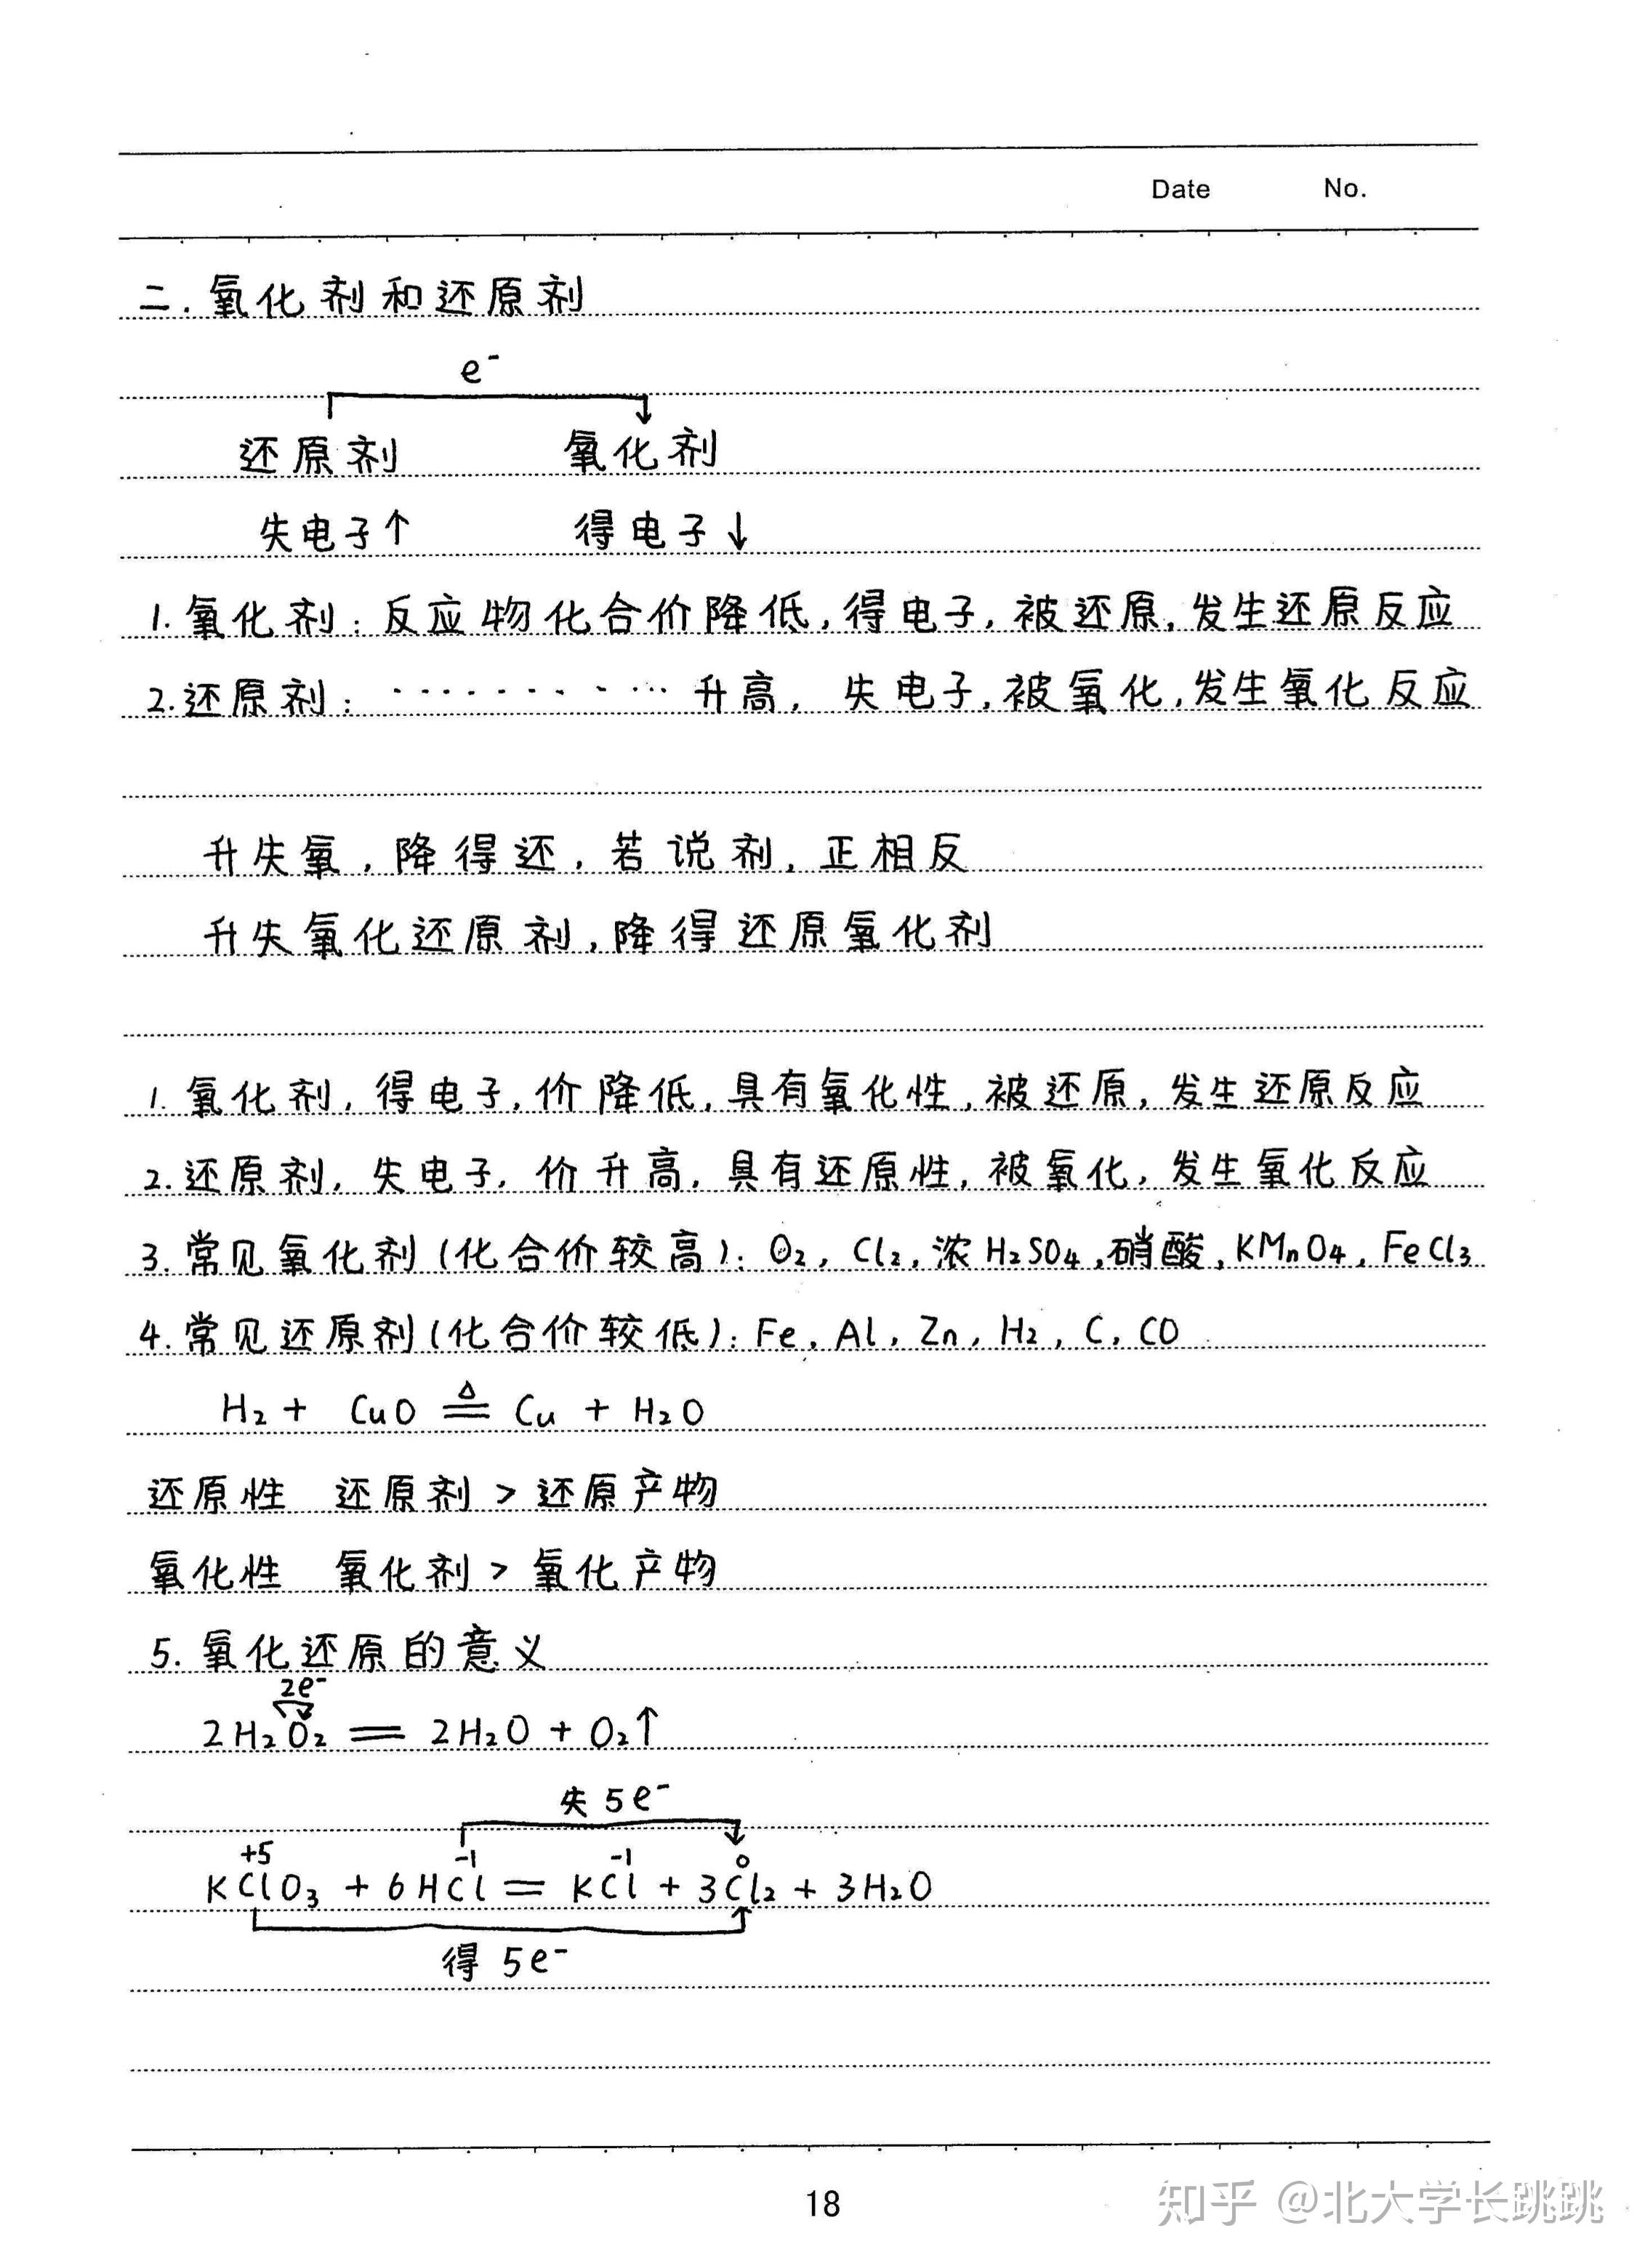 Date No.
二.氧化剂和还原剂
e⁻
还原剂 氧化剂
失电子↑ 得电子↓
1.氧化剂:反应物化合价降低,得电子,被还原,发生还原反应
2.还原剂:............升高,失电子,被氧化,发生氧化反应
升失氧,降得还,若说剂,正相反
升失氧化还原剂,降得还原氧化剂
1.氧化剂,得电子,价降低,具有氧化性,被还原,发生还原反应
2.还原剂,失电子,价升高,具有还原性,被氧化,发生氧化反应
3.常见氧化剂(化合价较高):O₂,Cl₂,浓H₂SO₄,硝酸,KMnO₄,FeCl₃
4.常见还原剂(化合价较低):Fe,Al,Zn,H₂,C,CO
△
H₂+ CuO = Cu + H₂O
还原性 还原剂>还原产物
氧化性 氧化剂>氧化产物
5.氧化还原的意义
2e⁻
2H₂O₂ = 2H₂O + O₂↑
失5e⁻
+5 -1 -1 0
KClO₃ + 6HCl = KCl + 3Cl₂ + 3H₂O
得5e⁻
18
知乎 @北大学长跳跳